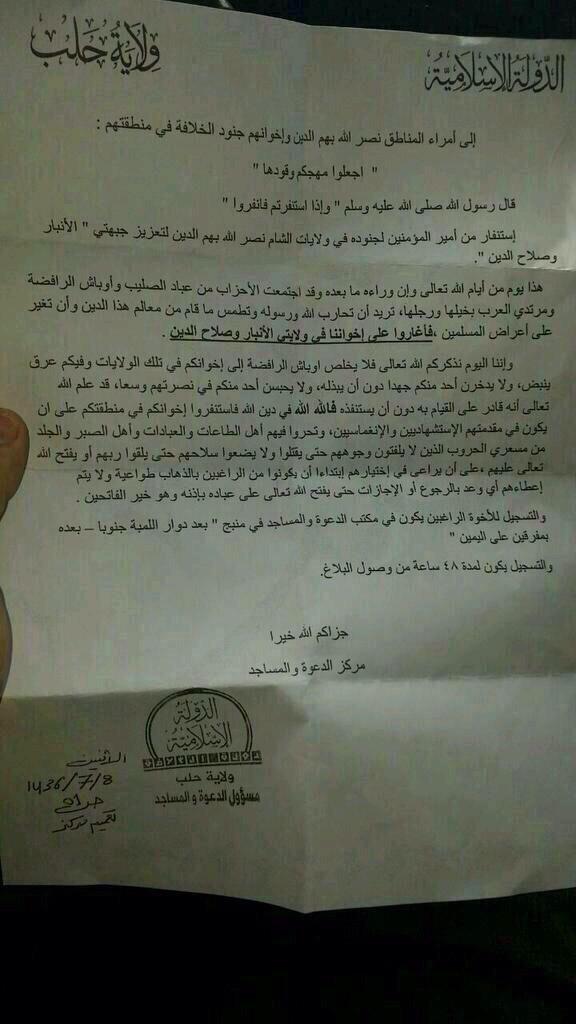 الدولة الإسلامية
ولاية حلب
إلى أمراء المناطق نصر الله بهم الدين وإخوانهم جنود الخلافة في منطقتهم :
" اجعلوا مهجكم وقودها "
قال رسول الله صلى الله عليه وسلم " وإذا استنفرتم فانفروا "
إستنفار من أمير المؤمنين لجنوده في ولايات الشام نصر الله بهم الدين لتعزيز جبهتي " الأنبار
وصلاح الدين ".
هذا يوم من أيام الله تعالى وإن وراءه ما بعده وقد اجتمعت الأحزاب من عباد الصليب وأوباش الرافضة
ومرتدي العرب بخيلها ورجلها، تريد أن تحارب الله ورسوله وتطمس ما قام من معالم هذا الدين وأن تغير
على أعراض المسلمين ،فأغاروا على إخواننا في ولايتي الأنبار وصلاح الدين .
وإننا اليوم نذكركم الله تعالى فلا يخلص اوباش الرافضة إلى إخوانكم في تلك الولايات وفيكم عرق
ينبض، ولا يدخرن أحد منكم جهدا دون أن يبذله، ولا يحبسن أحد منكم في نصرتهم وسعا، قد علم الله
تعالى أنه قادر على القيام به دون أن يستنفذه فالله الله في دين الله فاستنفروا إخوانكم في منطقتكم على ان
يكون في مقدمتهم الإستشهاديين والإنغماسيين، وتحروا فيهم أهل الطاعات والعبادات وأهل الصبر والجلد
من مسعري الحروب الذين لا يلفتون وجوههم حتى يقتلوا ولا يضعوا سلاحهم حتى يلقوا ربهم أو يفتح الله
تعالى عليهم ،على أن يراعى في إختيارهم إبتداءا أن يكونوا من الراغبين بالذهاب طواعية ولا يتم
إعطاءهم أي وعد بالرجوع أو الإجازات حتى يفتح الله تعالى على عباده بإذنه وهو خير الفاتحين .
والتسجيل للأخوة الراغبين يكون في مكتب الدعوة والمساجد في منبج " بعد دوار اللمبة جنوبا – بعده
بمفرقين على اليمين "
والتسجيل يكون لمدة ٤٨ ساعة من وصول البلاغ.
جزاكم الله خيرا
مركز الدعوة والمساجد
الدولة
الإسلامية
ولاية حلب
مسؤول الدعوة والمساجد
١٤٣٦/٧/8